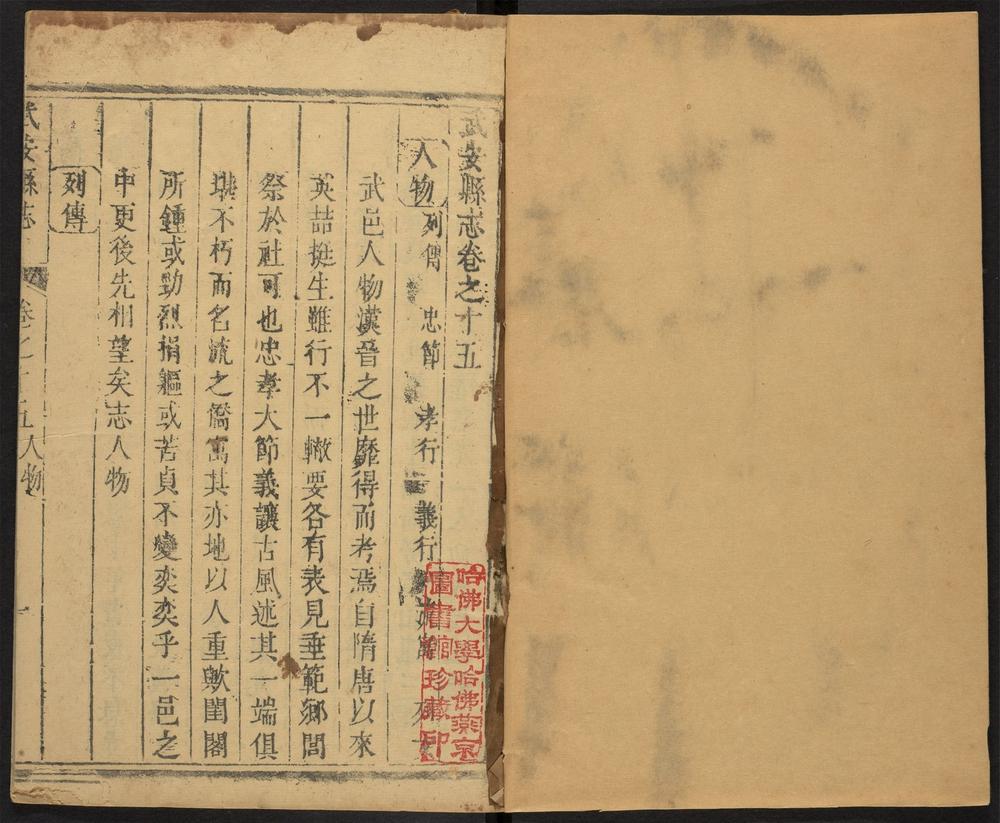 武安縣志卷之十五
人物 列傳 忠節 孝行 義行 寓 列
武邑人物漢晉之世靡得而考焉自隋唐以來
英喆挺生雖行不一轍要各有表見垂範鄉閭
祭於社可也忠孝大節義讓古風述其一端俱
堪不朽而名流之僑寓其亦地以人重歟閨閣
所鍾或勁烈捐軀或苦貞不變奕奕乎一邑之
中更後先相望矣志人物
列傳
武安縣志 卷之十五人物 一
哈佛大學哈佛燕京
圖書館珍藏印